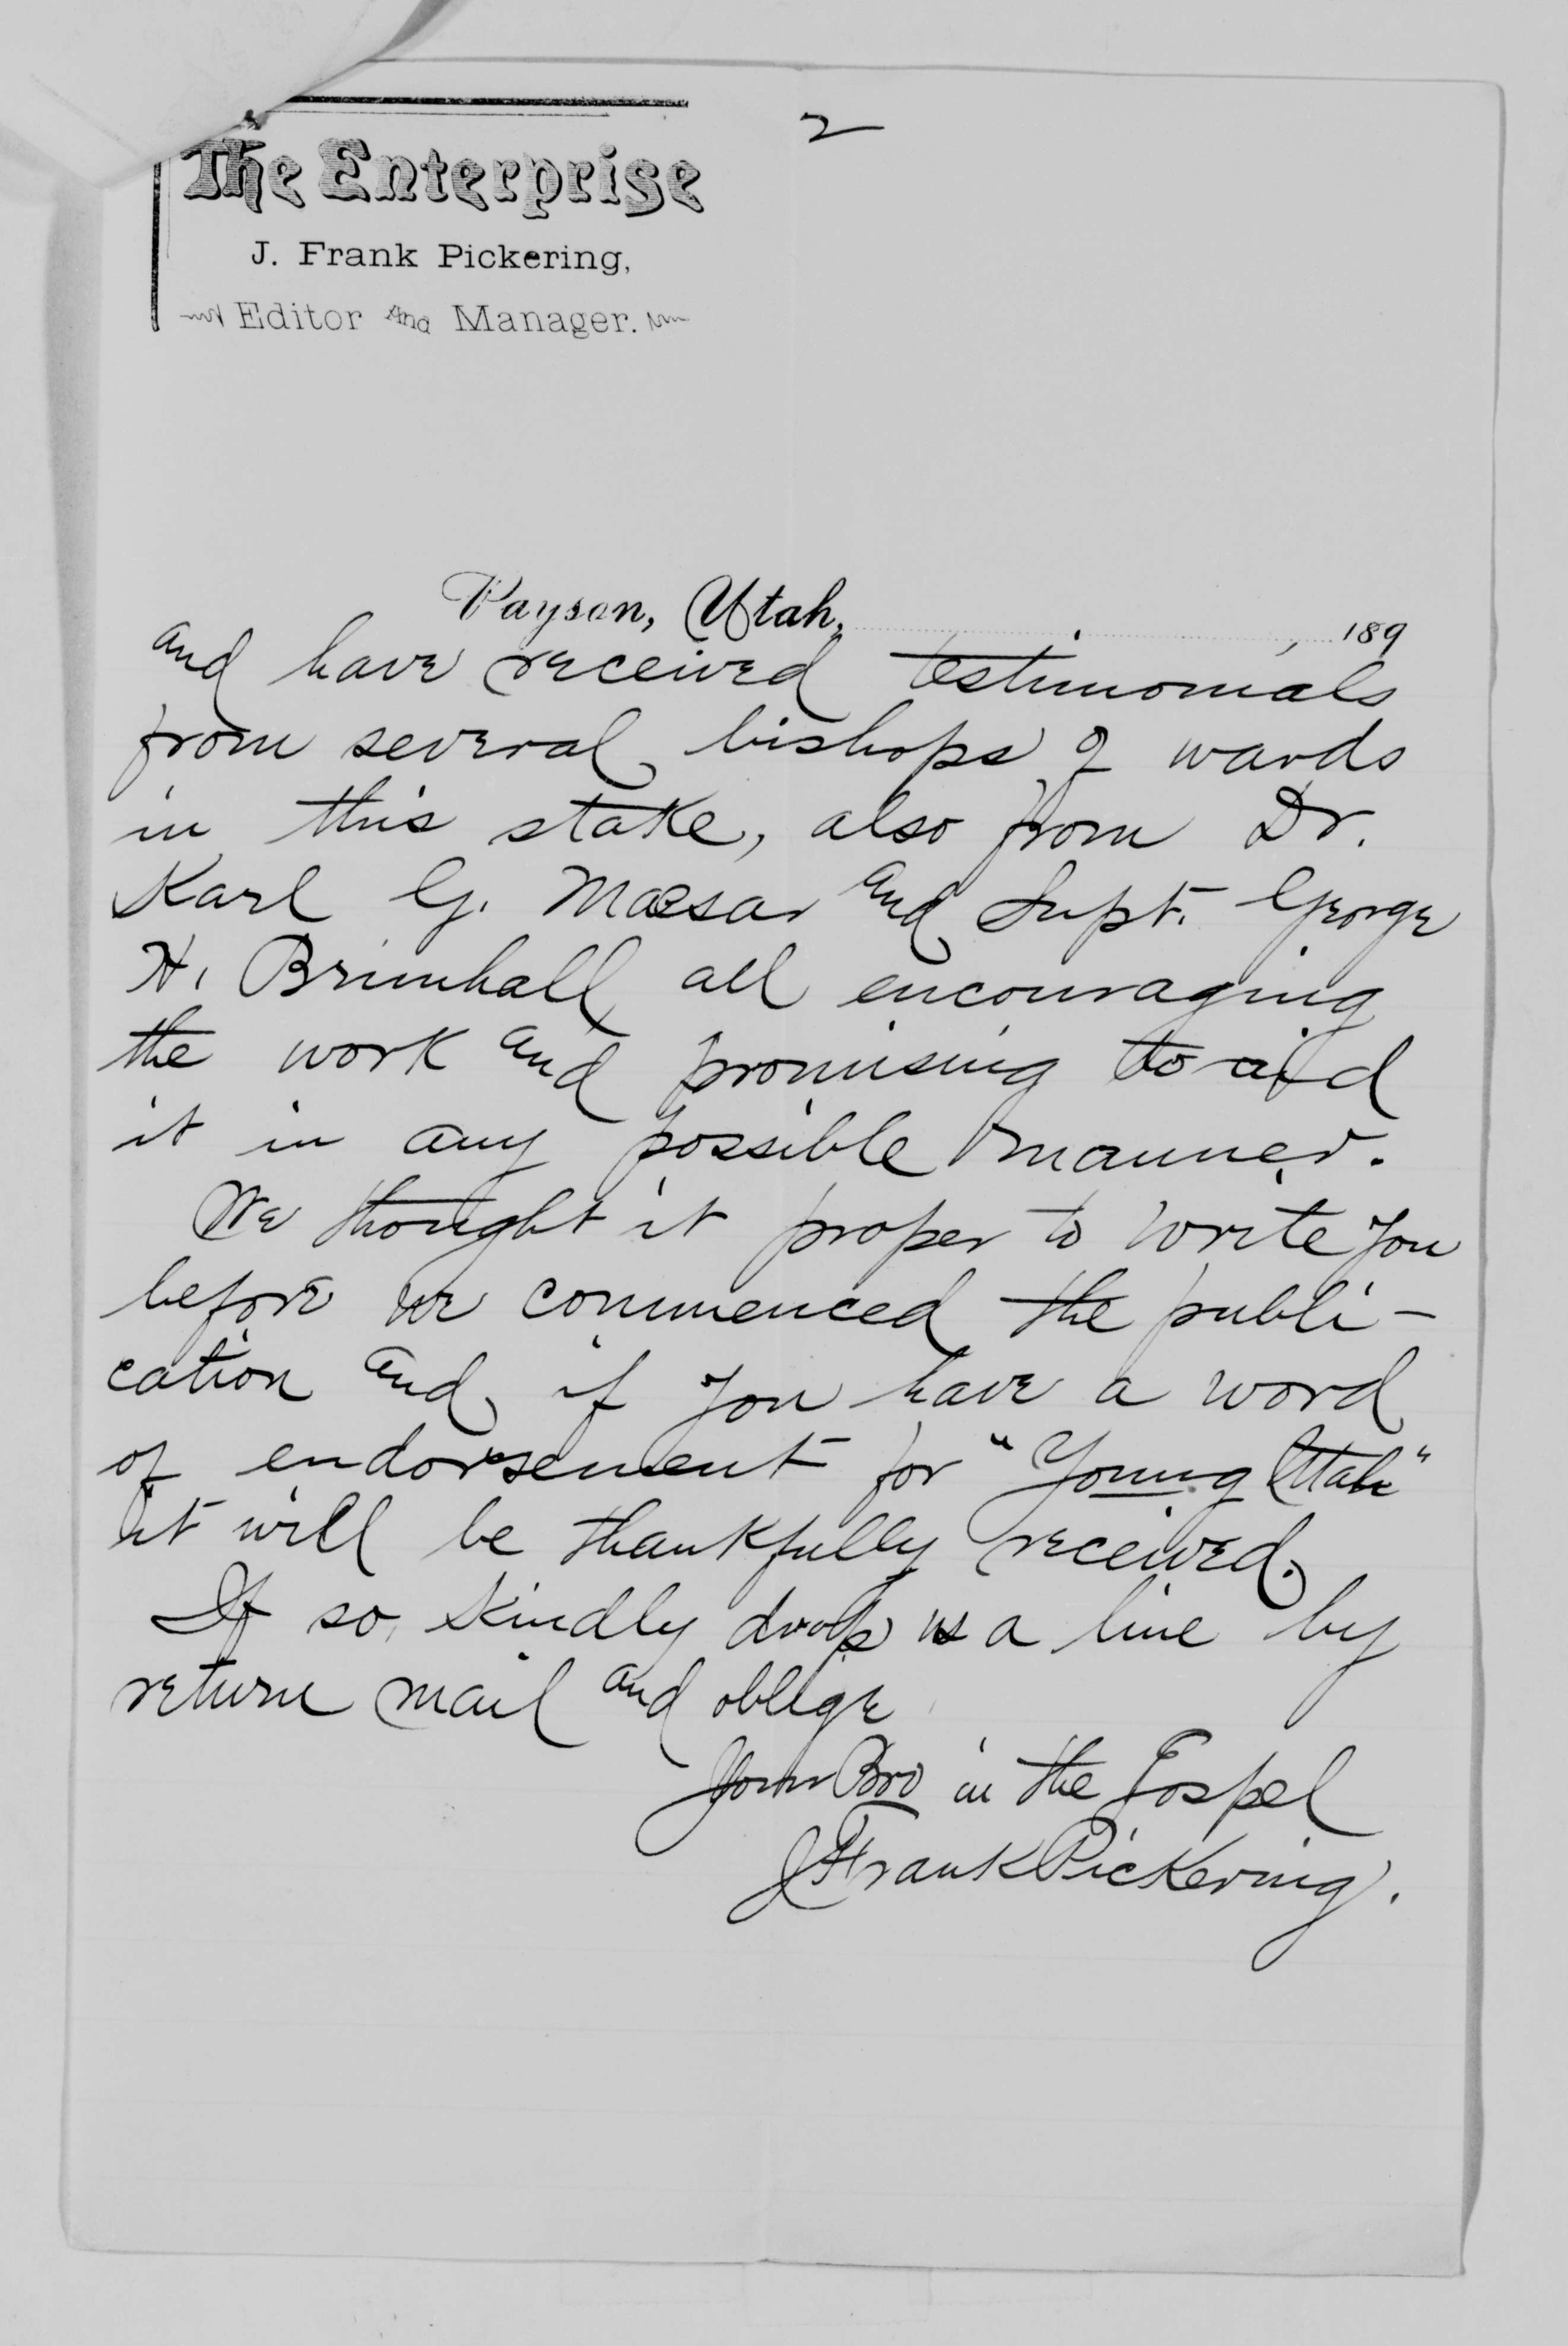 2
The Enterprise
J. Frank Pickering,
Editor and Manager.
Payson, Utah, , 189
and have received testimonials
from several bishops of wards
in this stake, also from Dr.
Karl G. Maesar and Supt. George
H. Brimhall, all encouraging
the work and promising to aid
it in any possible manner.
We thought it proper to write you
before we commenced the publi-
cation and, if you have a word
of endorsement for "Young Utah"
it will be thankfully received.
If so, kindly drop us a line by
return mail and oblige
Your Bro in the Gospel
J Frank Pickering.